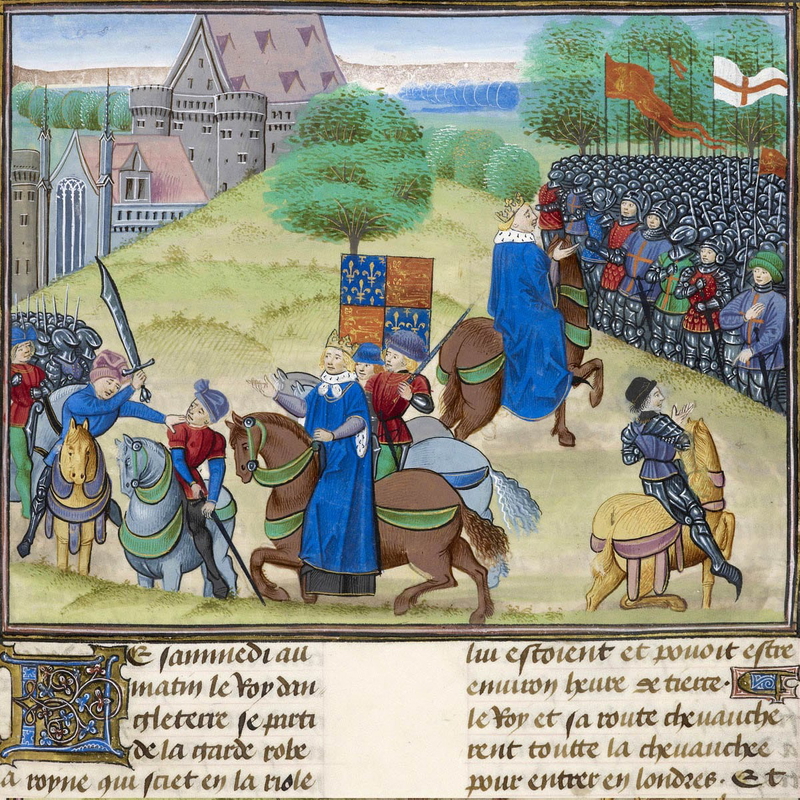 LE sammedi au
matin le Roy dan
gleterre se parti
de la garde robe
a royne qui sciet en la riole
lui estoient et pouoit estre
environ heure de tierce.
le Roy et sa route chevauche
rent toutte la chevauchee
pour entrer en londres. Et